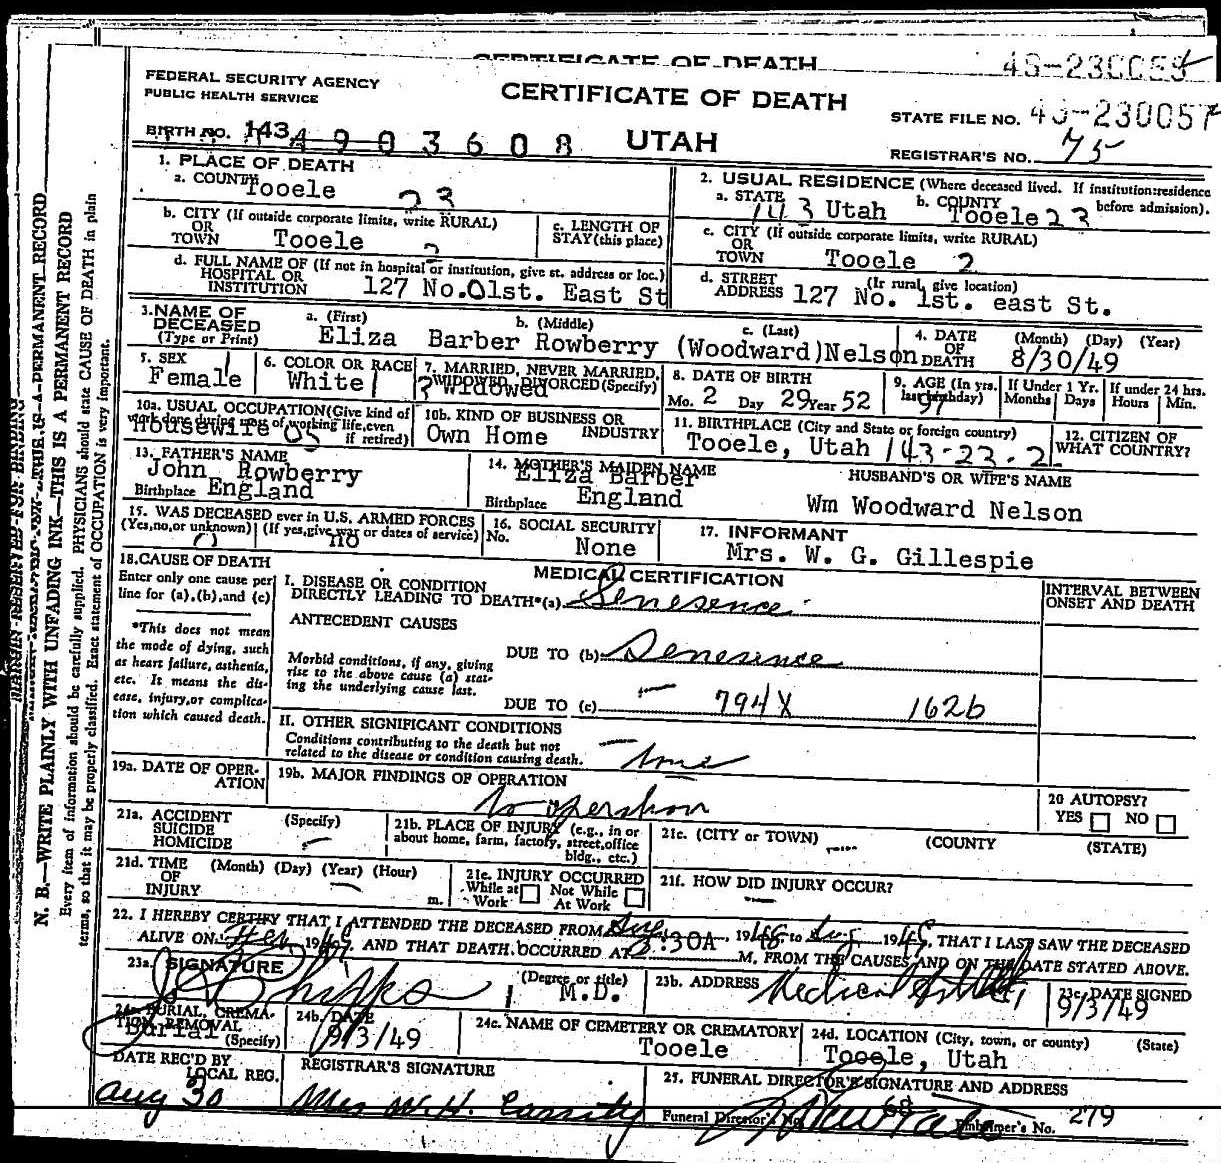 CERTIFICATE OF DEATH
FEDERAL SECURITY AGENCY
PUBLIC HEALTH SERVICE
CERTIFICATE OF DEATH
STATE FILE NO. 49-230057
BIRTH NO. 143 4903608
UTAH
REGISTRAR'S NO. 75
1. PLACE OF DEATH
a. COUNTY Tooele 23
2. USUAL RESIDENCE (Where deceased lived. If institution:residence before admission).
a. STATE 143 Utah b. COUNTY Tooele 23
b. CITY (If outside corporate limits, write RURAL)
OR
TOWN Tooele 2
c. LENGTH OF
STAY (this place)
c. CITY (If outside corporate limits, write RURAL)
OR
TOWN Tooele 2
d. FULL NAME OF (If not in hospital or institution, give st. address or loc.)
HOSPITAL OR
INSTITUTION 127 No. 01st. East St
d. STREET (If rural, give location)
ADDRESS 127 No. 1st. east St.
3. NAME OF
DECEASED
(Type or Print)
a. (First) b. (Middle) c. (Last)
Eliza Barber Rowberry (Woodward)Nelson
4. DATE
OF
DEATH
(Month) (Day) (Year)
8/30/49
5. SEX
Female 1
6. COLOR OR RACE
White 1
7. MARRIED, NEVER MARRIED,
WIDOWED, DIVORCED (Specify)
Widowed
8. DATE OF BIRTH
Mo. 2 Day 29 Year 52
9. AGE (In yrs.
last birthday)
97
If Under 1 Yr.
Months Days
If under 24 hrs.
Hours Min.
10a. USUAL OCCUPATION (Give kind of
work done during most of working life, even
if retired)
Housewife
10b. KIND OF BUSINESS OR
INDUSTRY
Own Home
11. BIRTHPLACE (City and State or foreign country)
Tooele, Utah 143-23-2
12. CITIZEN OF
WHAT COUNTRY?
13. FATHER'S NAME
John Rowberry
Birthplace England
14. MOTHER'S MAIDEN NAME
Eliza Barber
Birthplace England
HUSBAND'S OR WIFE'S NAME
Wm Woodward Nelson
15. WAS DECEASED ever in U.S. ARMED FORCES
(Yes, no, or unknown) (If yes, give war or dates of service)
0 no
16. SOCIAL SECURITY
No. None
17. INFORMANT
Mrs. W. G. Gillespie
18. CAUSE OF DEATH
Enter only one cause per
line for (a), (b), and (c)
*This does not mean
the mode of dying, such
as heart failure, asthenia,
etc. It means the dis-
ease, injury, or complica-
tion which caused death.
MEDICAL CERTIFICATION
INTERVAL BETWEEN
ONSET AND DEATH
I. DISEASE OR CONDITION
DIRECTLY LEADING TO DEATH*(a) Senesence
ANTECEDENT CAUSES
Morbid conditions, if any, giving
rise to the above cause (a) stat-
ing the underlying cause last.
DUE TO (b) Senesence
DUE TO (c) 794X 162b
II. OTHER SIGNIFICANT CONDITIONS
Conditions contributing to the death but not
related to the disease or condition causing death.
19a. DATE OF OPER-
ATION
19b. MAJOR FINDINGS OF OPERATION
No operation
20 AUTOPSY?
YES NO
21a. ACCIDENT
SUICIDE
HOMICIDE
(Specify)
21b. PLACE OF INJURY (e.g., in or
about home, farm, factory, street, office
bldg., etc.)
21c. (CITY or TOWN) (COUNTY) (STATE)
21d. TIME
OF
INJURY
(Month) (Day) (Year) (Hour)
m.
21e. INJURY OCCURRED
While at Work Not While At Work
21f. HOW DID INJURY OCCUR?
22. I HEREBY CERTIFY THAT I ATTENDED THE DECEASED FROM Aug, 1948 to Aug 1949, THAT I LAST SAW THE DECEASED
ALIVE ON 1949, AND THAT DEATH OCCURRED AT :30A M, FROM THE CAUSES AND ON THE DATE STATED ABOVE.
23a. SIGNATURE
(Degree or title)
M.D.
23b. ADDRESS
Medical
23c. DATE SIGNED
9/3/49
24a. BURIAL, CREMA-
TION, REMOVAL
(Specify)
Burial
24b. DATE
9/3/49
24c. NAME OF CEMETERY OR CREMATORY
Tooele
24d. LOCATION (City, town, or county) (State)
Tooele, Utah
DATE REC'D BY
LOCAL REG.
Aug 30
REGISTRAR'S SIGNATURE
Mrs W. H. Cassity
25. FUNERAL DIRECTOR'S SIGNATURE AND ADDRESS
Funeral Director's No. 68
Embalmer's No. 279
N. B.—WRITE PLAINLY WITH UNFADING INK—THIS IS A PERMANENT RECORD
Every item of information should be carefully supplied. PHYSICIANS should state CAUSE OF DEATH in plain
terms, so that it may be properly classified. Exact statement of OCCUPATION is very important.